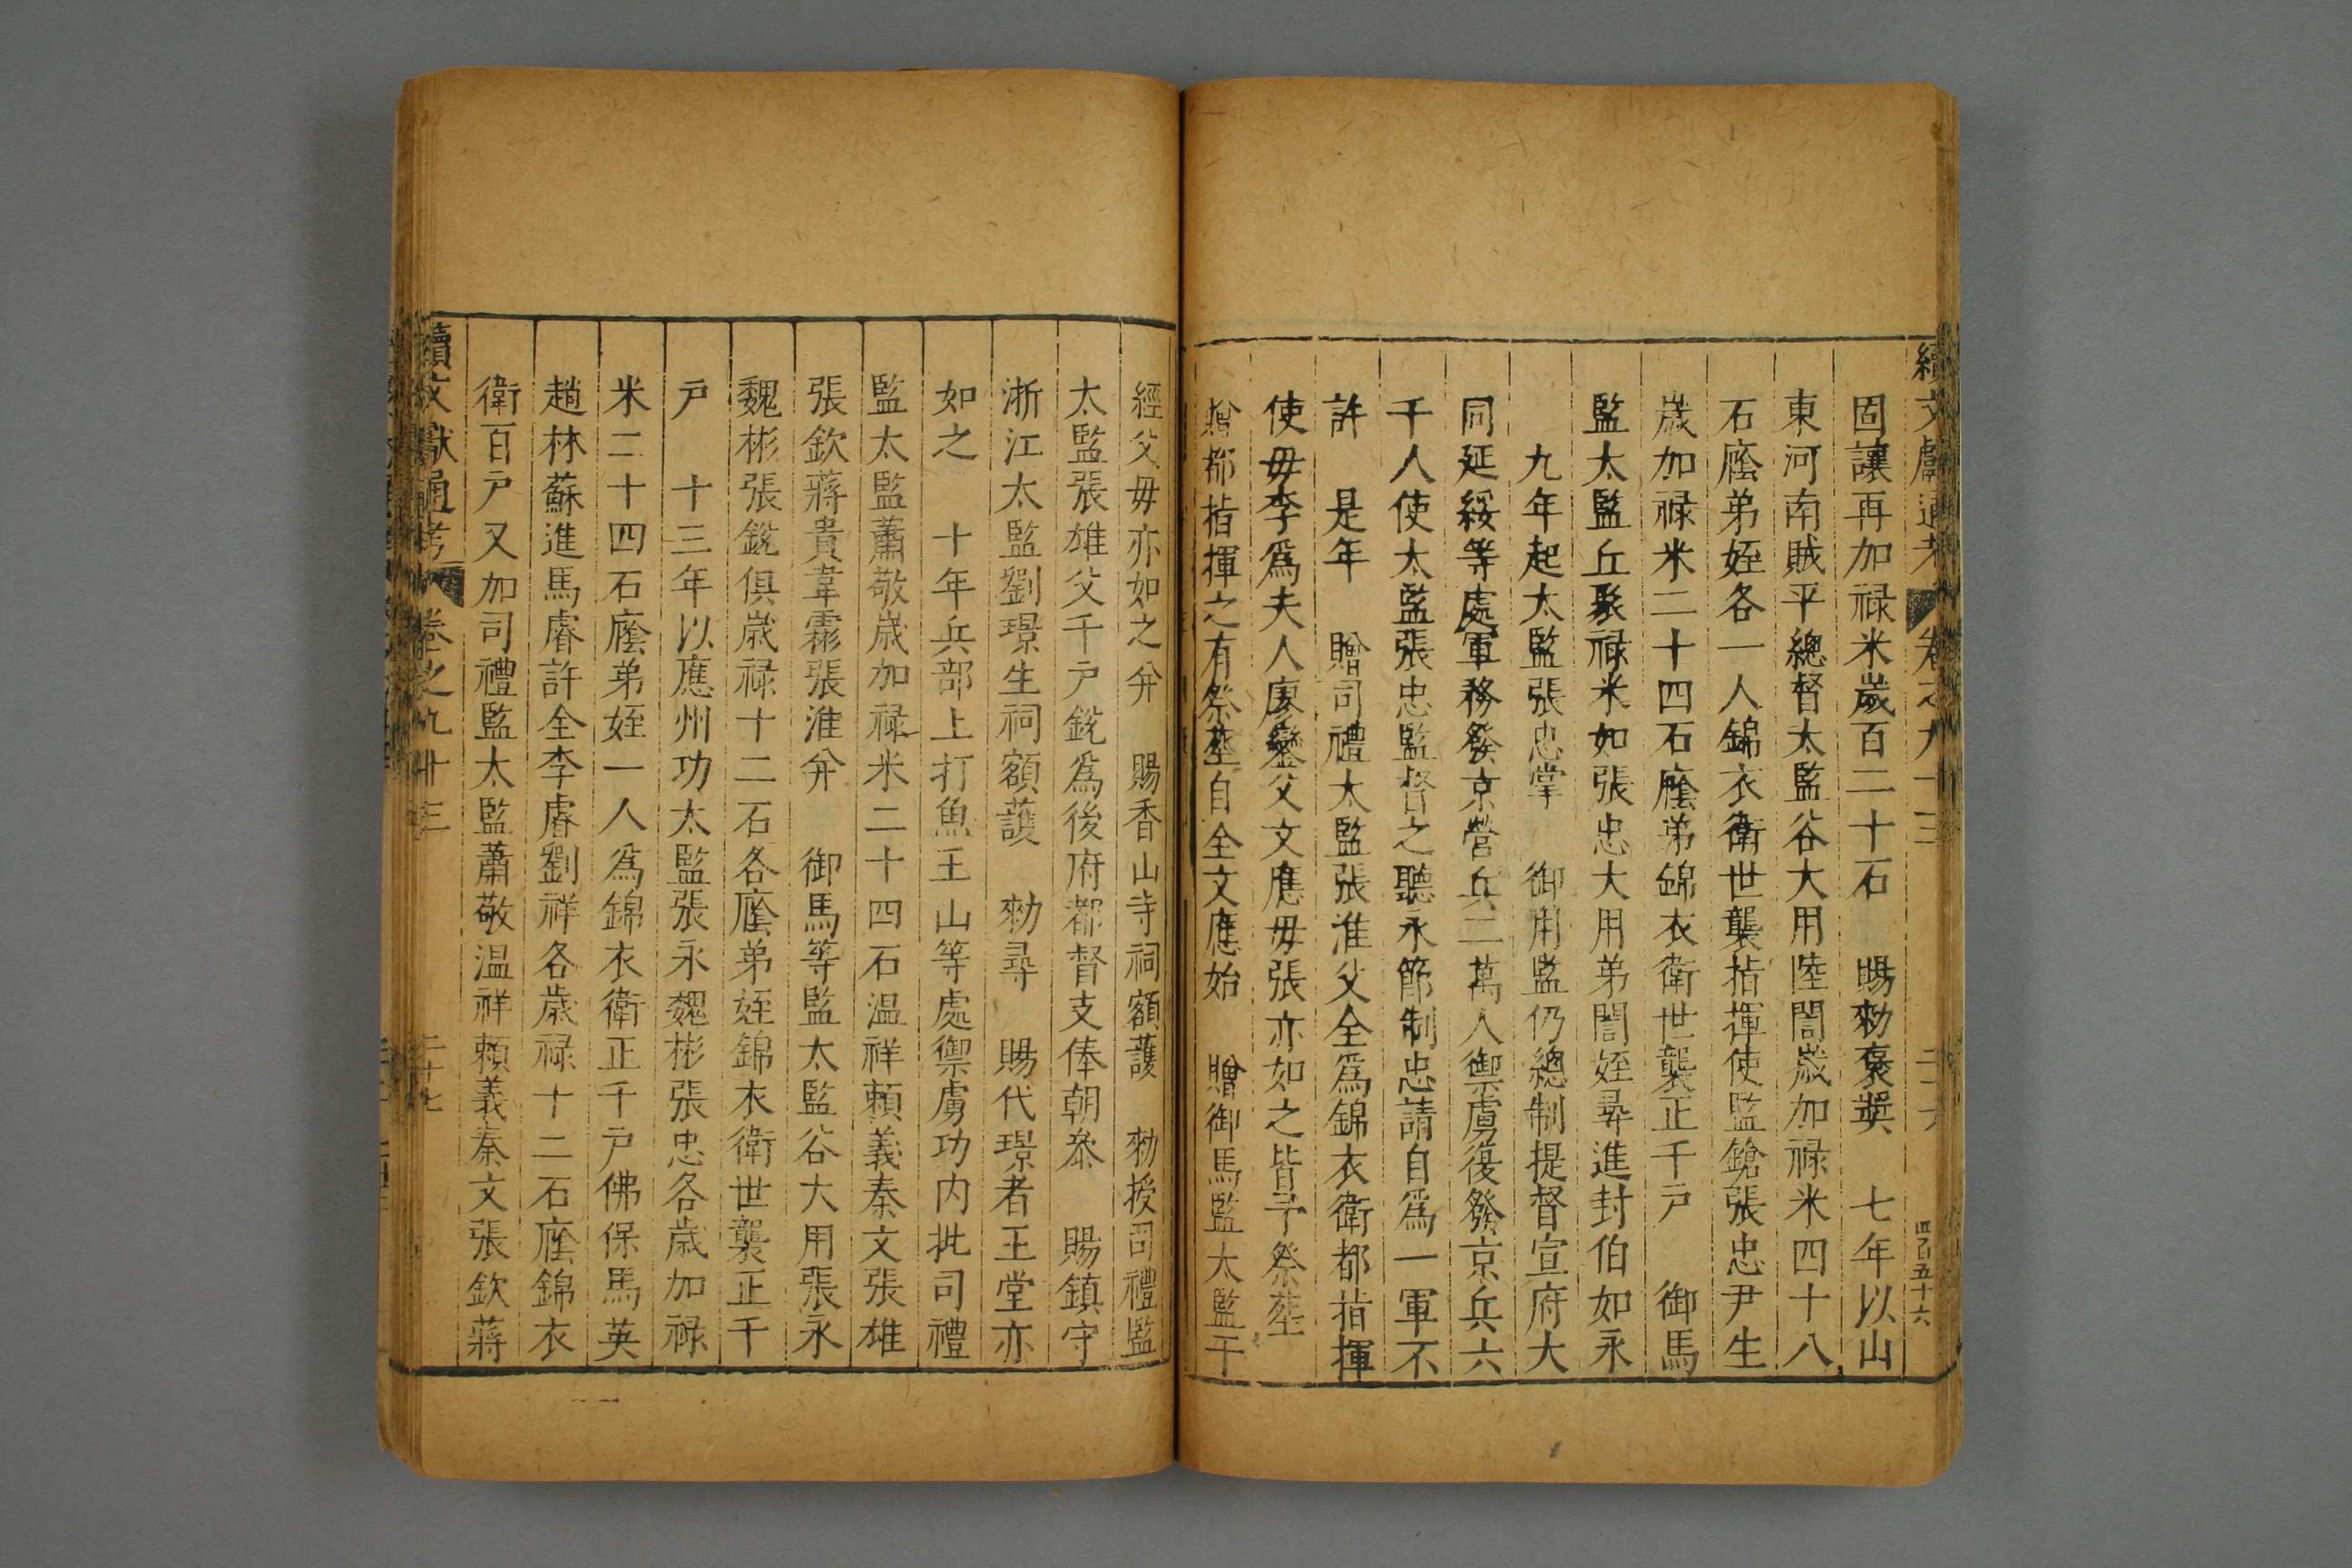 續文獻通考 卷之九十三 二十六 四百五十六
固讓再加禄米歲百二十石 賜勑褒奬 七年以山
東河南賊平總督太監谷大用陸誾歲加禄米四十八
石廕弟姪各一人錦衣衛世襲指揮使監鎗張忠尹生
歲加禄米二十四石廕弟錦衣衛世襲正千戸 御馬
監太監丘聚禄米如張忠大用弟誾姪尋進封伯如永
九年起太監張忠掌 御用監仍總制提督宣府大
同延綏等處軍務發京營兵二萬人禦虜復發京兵六
千人使太監張忠監督之聽永節制忠請自爲一軍不
許 是年 贈司禮太監張淮父全爲錦衣衛都指揮
使毋李爲夫人廖鑾父文應毋張亦如之皆予祭塟
贈都指揮之有祭塟自全文應始 贈御馬監太監于
經父毋亦如之弁 賜香山寺祠額護 勑授司禮監
太監張雄父千戸銳爲後府都督支俸朝叅 賜鎮守
浙江太監劉璟生祠額護 勑尋 賜代璟者王堂亦
如之 十年兵部上打魚王山等處禦虜功内批司禮
監太監蕭敬歲加禄米二十四石温祥賴義秦文張雄
張欽蔣貴韋霦張淮弁 御馬等監太監谷大用張永
魏彬張銳俱歲禄十二石各廕弟姪錦衣衛世襲正千
戸 十三年以應州功太監張永魏彬張忠各歲加禄
米二十四石廕弟姪一人爲錦衣衛正千戸佛保馬英
趙林蘇進馬㕡許全李㕡劉祥各歲禄十二石廕錦衣
衛百戸又加司禮監太監蕭敬温祥賴義秦文張欽蔣
續文獻通考 卷之九十三 二十七